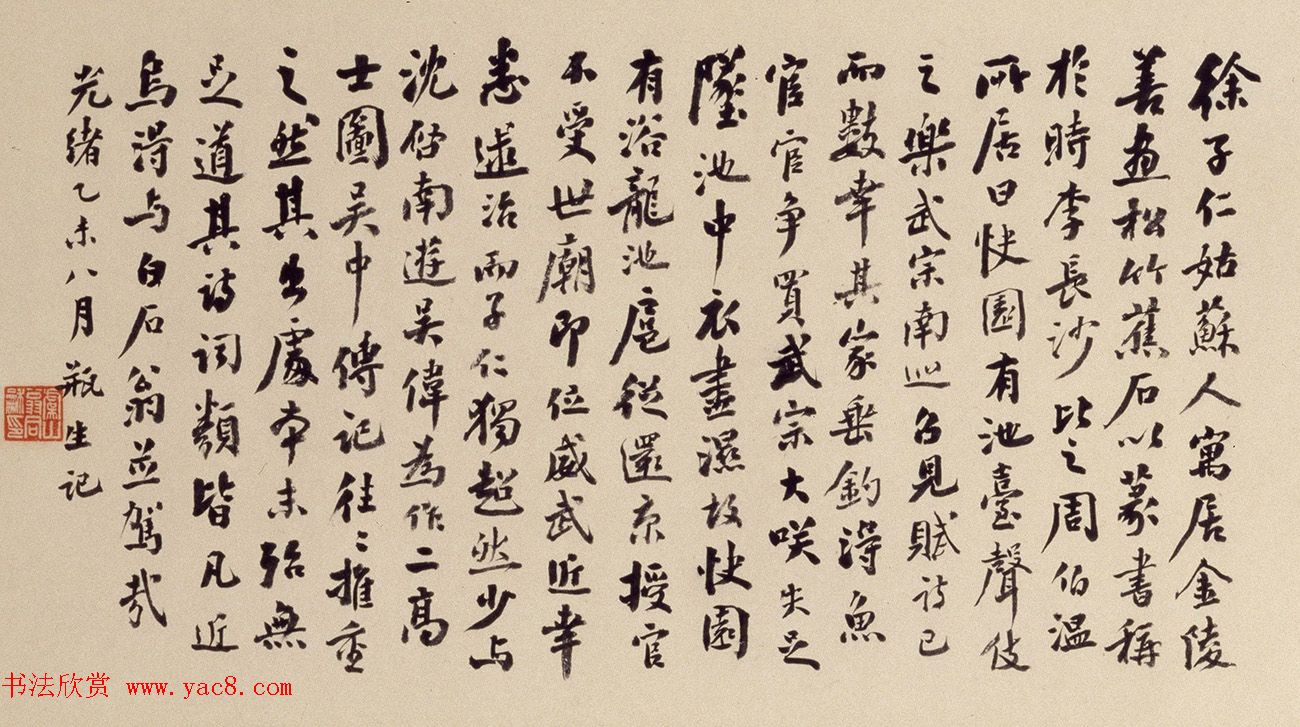 徐子仁姑蘇人寓居金陵
善畫松竹蕉石以篆書稱
於時李長沙比之周伯溫
所居曰快園有池臺聲伎
之樂武宗南巡召見賦詩已
而數幸其家垂釣得魚
宦官争買武宗大咲失足
墜池中衣盡濕故快園
有浴龍池扈從還京授官
不受世廟即位威武近幸
悉逮治而子仁獨超然少与
沈啓南遊吴偉為作二高
士圖吴中傳記往々推重
之然其出處本末殆無
足道其詩詞類皆凡近
烏得与白石翁並駕哉
光緒乙未八月瓶生記
虞山翁同龢印
书法欣赏 www.yac8.com